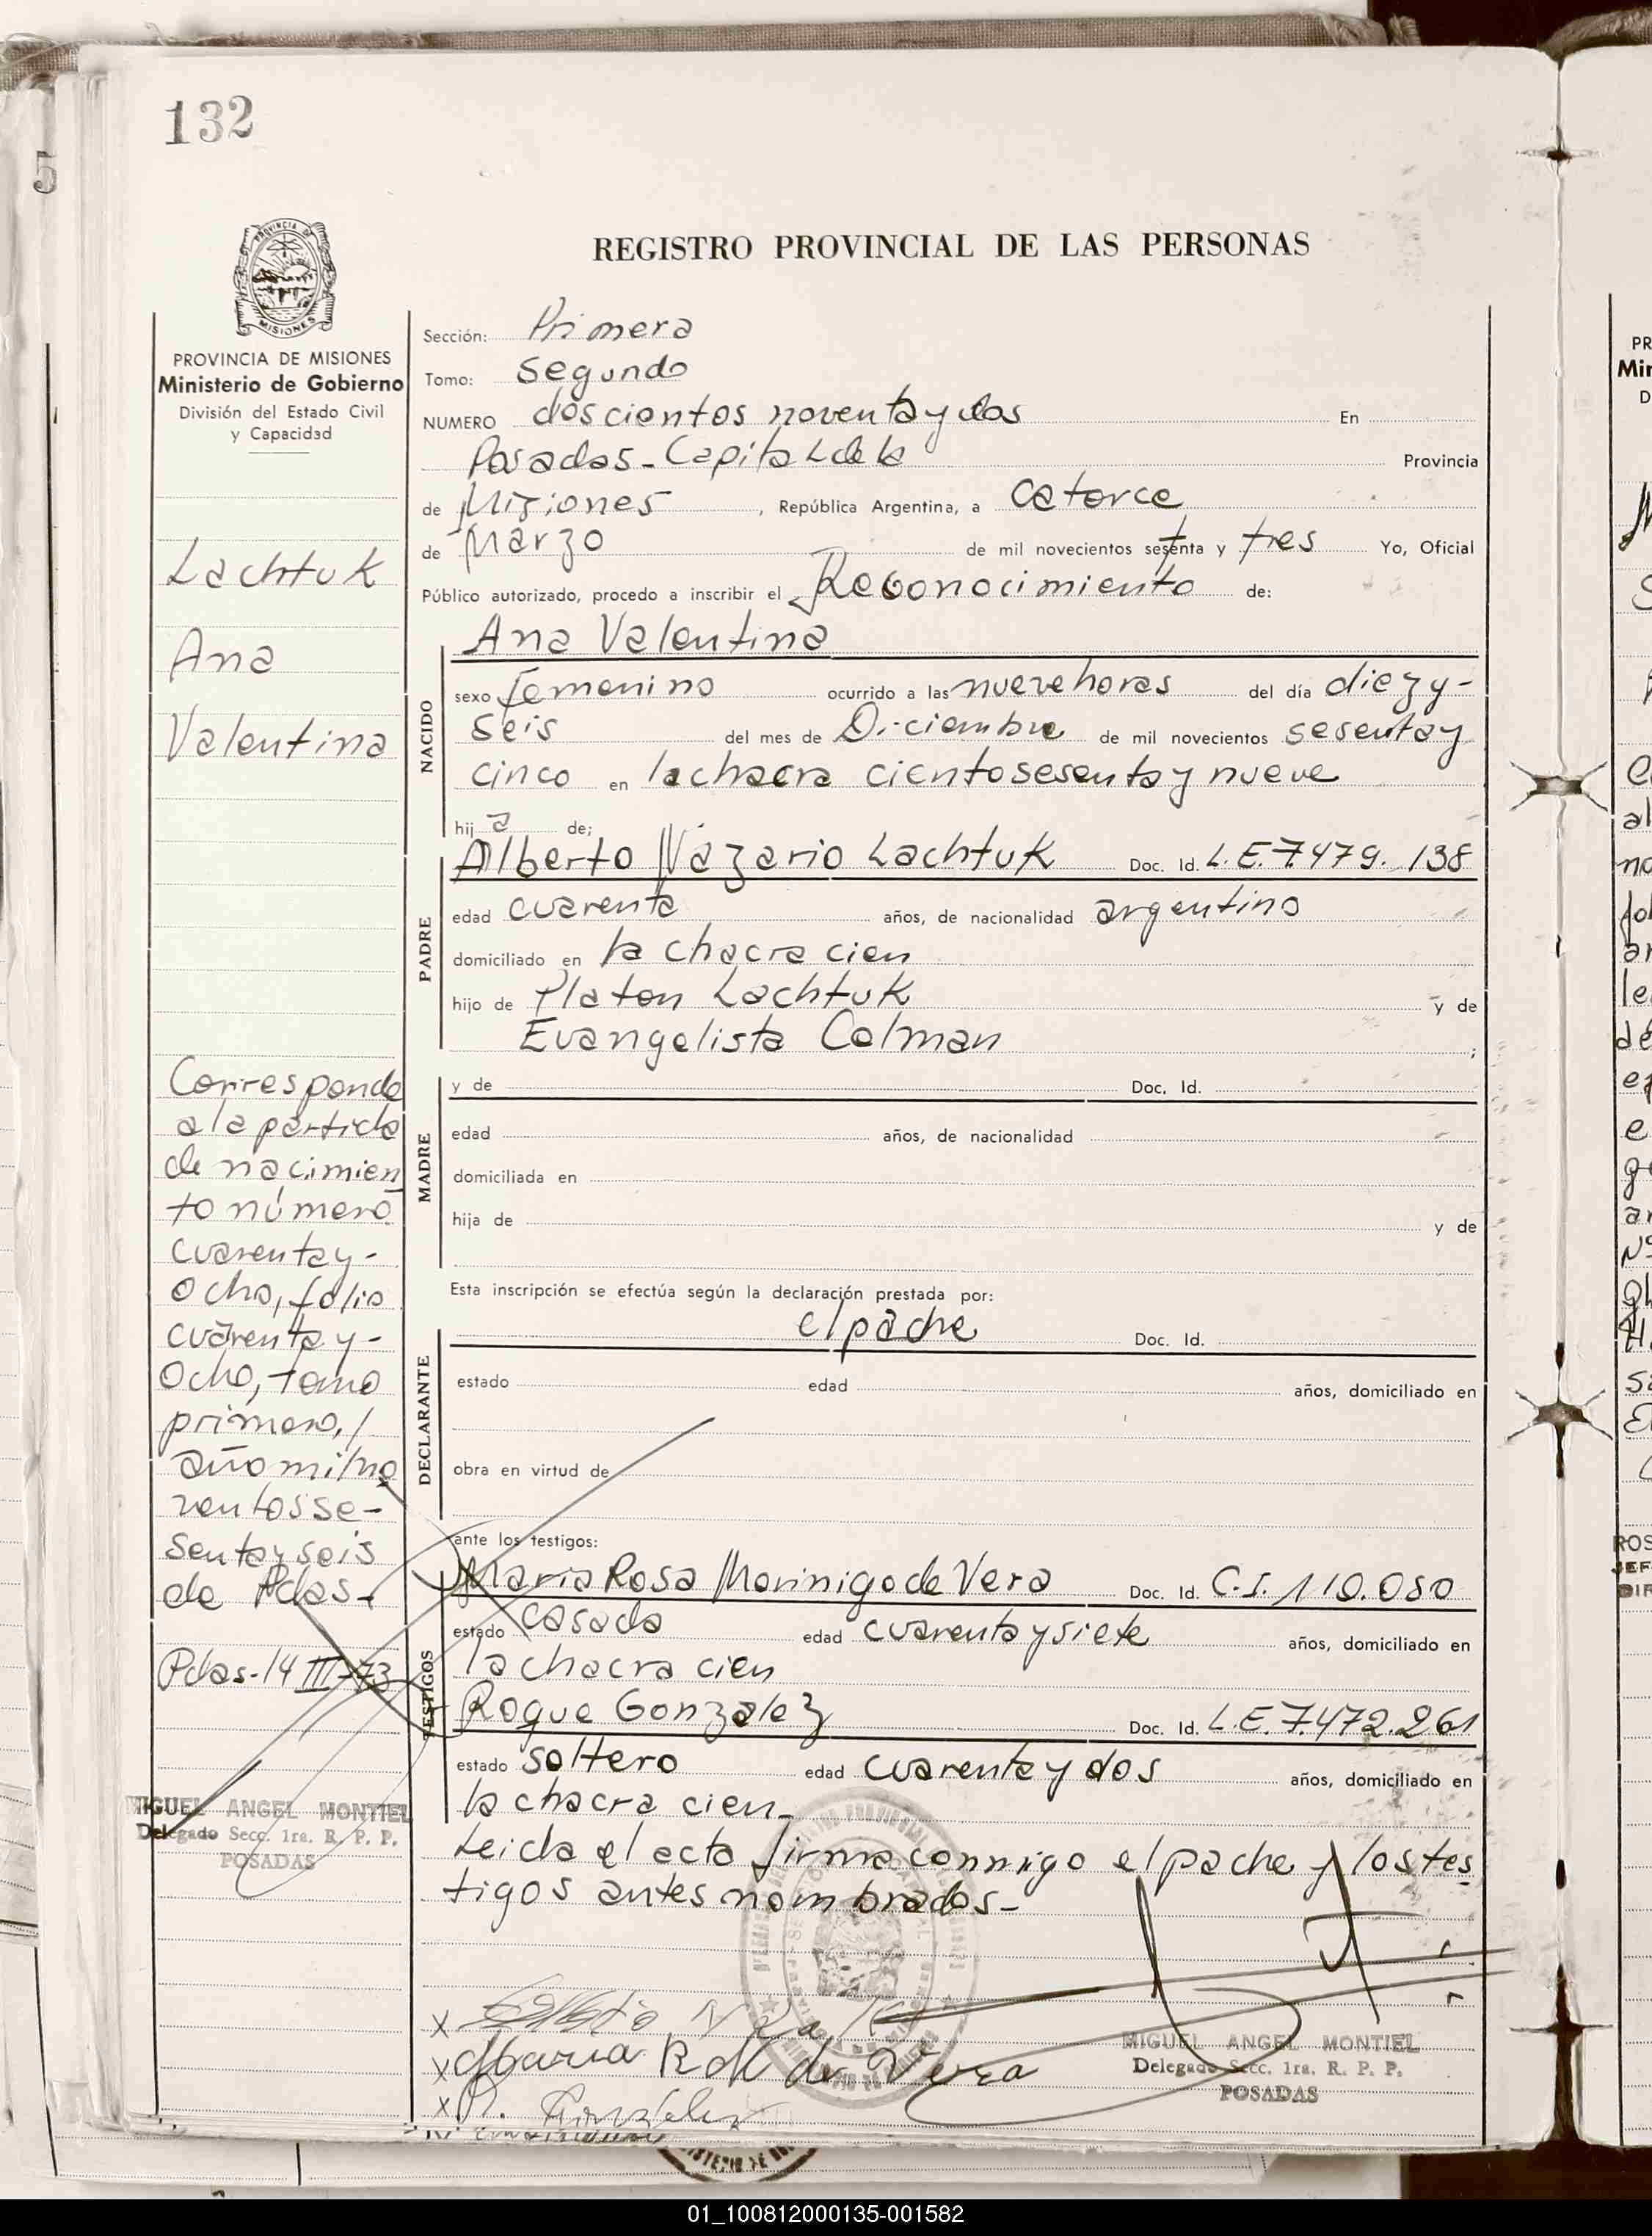 132
5
REGISTRO PROVINCIAL DE LAS PERSONAS
PROVINCIA DE MISIONES
Ministerio de Gobierno
División del Estado Civil
y Capacidad
Lachtuk
Ana
Valentina
Corresponde
a la partida
de nacimien
to número
cuarenta y-
ocho, folio
cuarenta y-
ocho, tomo
primero, /
año mil no
ventos se-
senta y seis
de Pdas-
Pdas-14 III-73
MIGUEL ANGEL MONTIEL
Delegado Secc. 1ra. R. P. P.
POSADAS
Sección: Primera
Tomo: Segundo
NUMERO doscientos noventa y dos En
Posadas-Capital de la Provincia
de Misiones, República Argentina, a catorce
de Marzo de mil novecientos setenta y tres Yo, Oficial
Público autorizado, procedo a inscribir el Reconocimiento de:
NACIDO
Ana Valentina
sexo femenino ocurrido a las nueve horas del día diez y-
seis del mes de Diciembre de mil novecientos sesenta y
cinco en la chacra ciento sesenta y nueve
hij a de;
PADRE
Alberto Nazario Lachtuk Doc. Id. L.E. 7.479.138
edad cuarenta años, de nacionalidad argentino
domiciliado en la chacra cien
hijo de Platon Lachtuk y de
Evangelista Colman ;
MADRE
y de Doc. Id.
edad años, de nacionalidad
domiciliada en
hija de y de
Esta inscripción se efectúa según la declaración prestada por:
DECLARANTE
el padre Doc. Id.
estado edad años, domiciliado en
obra en virtud de
ante los testigos:
TESTIGOS
Maria Rosa Morinigo de Vera Doc. Id. C.I. 110.080
estado casada edad cuarenta y siete años, domiciliado en
la chacra cien
Roque Gonzalez Doc. Id. L.E. 7.472.261
estado soltero edad cuarenta y dos años, domiciliado en
la chacra cien-
Leida el acta firma conmigo el padre y los tes
tigos antes nombrados-
X
X Maria R M de Vera
X R. González
MIGUEL ANGEL MONTIEL
Delegado Secc. 1ra. R. P. P.
POSADAS
01_100812000135-001582